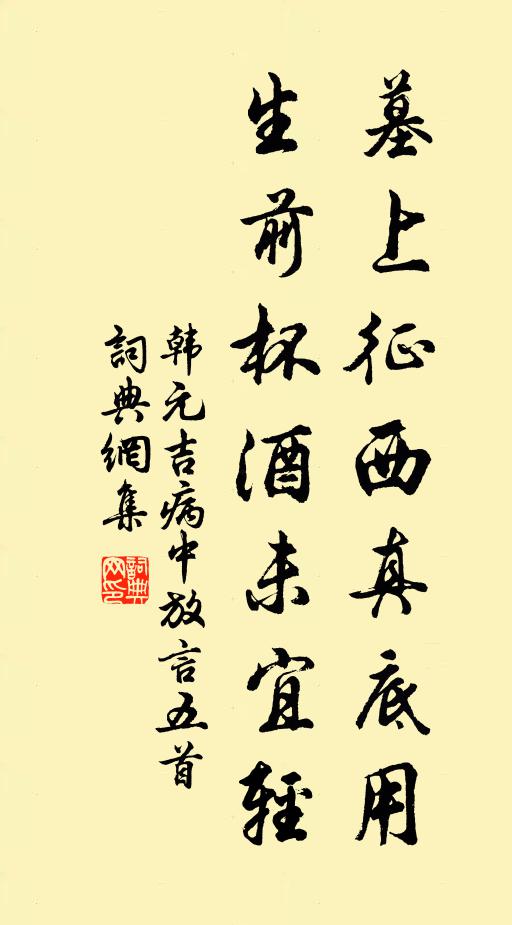 墓上征西真底用
生前杯酒未宜輕
韩元吉病中放言五首
詞典網集
詞典网印